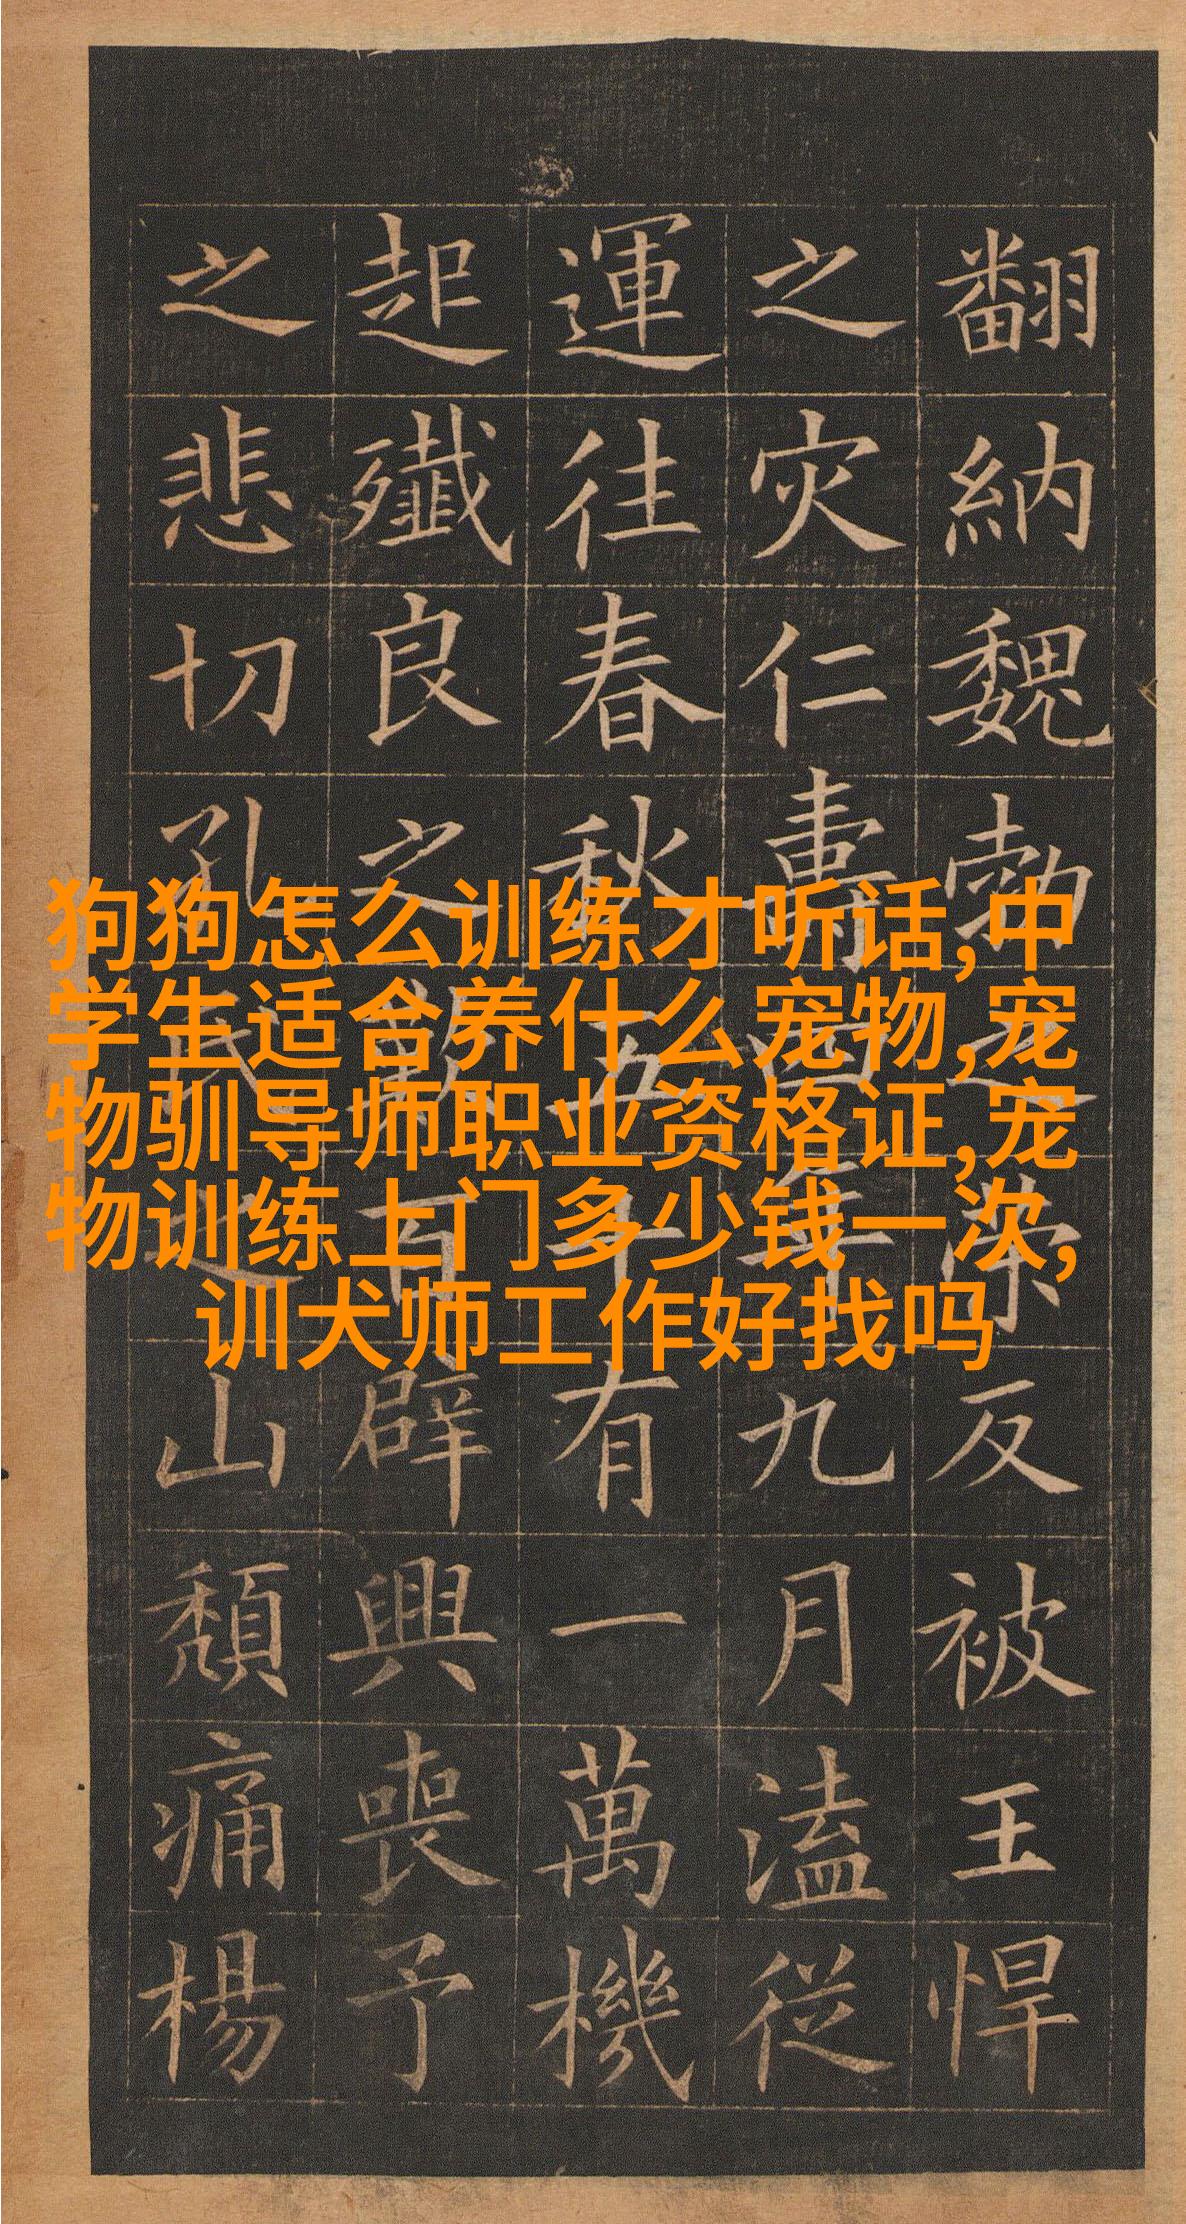 狗狗怎么训练才听话,中
学生适合养什么宠物,宠
物驯导师职业资格证,宠
物训练上门多少钱一次,
训犬师工作好找吗
翻納魏勃之反被王悍
之灾仁壽年九月溘從
運往春秋五十有一萬機
起殲良之歎百辟興喪予
之悲切孔氏之山頹痛楊